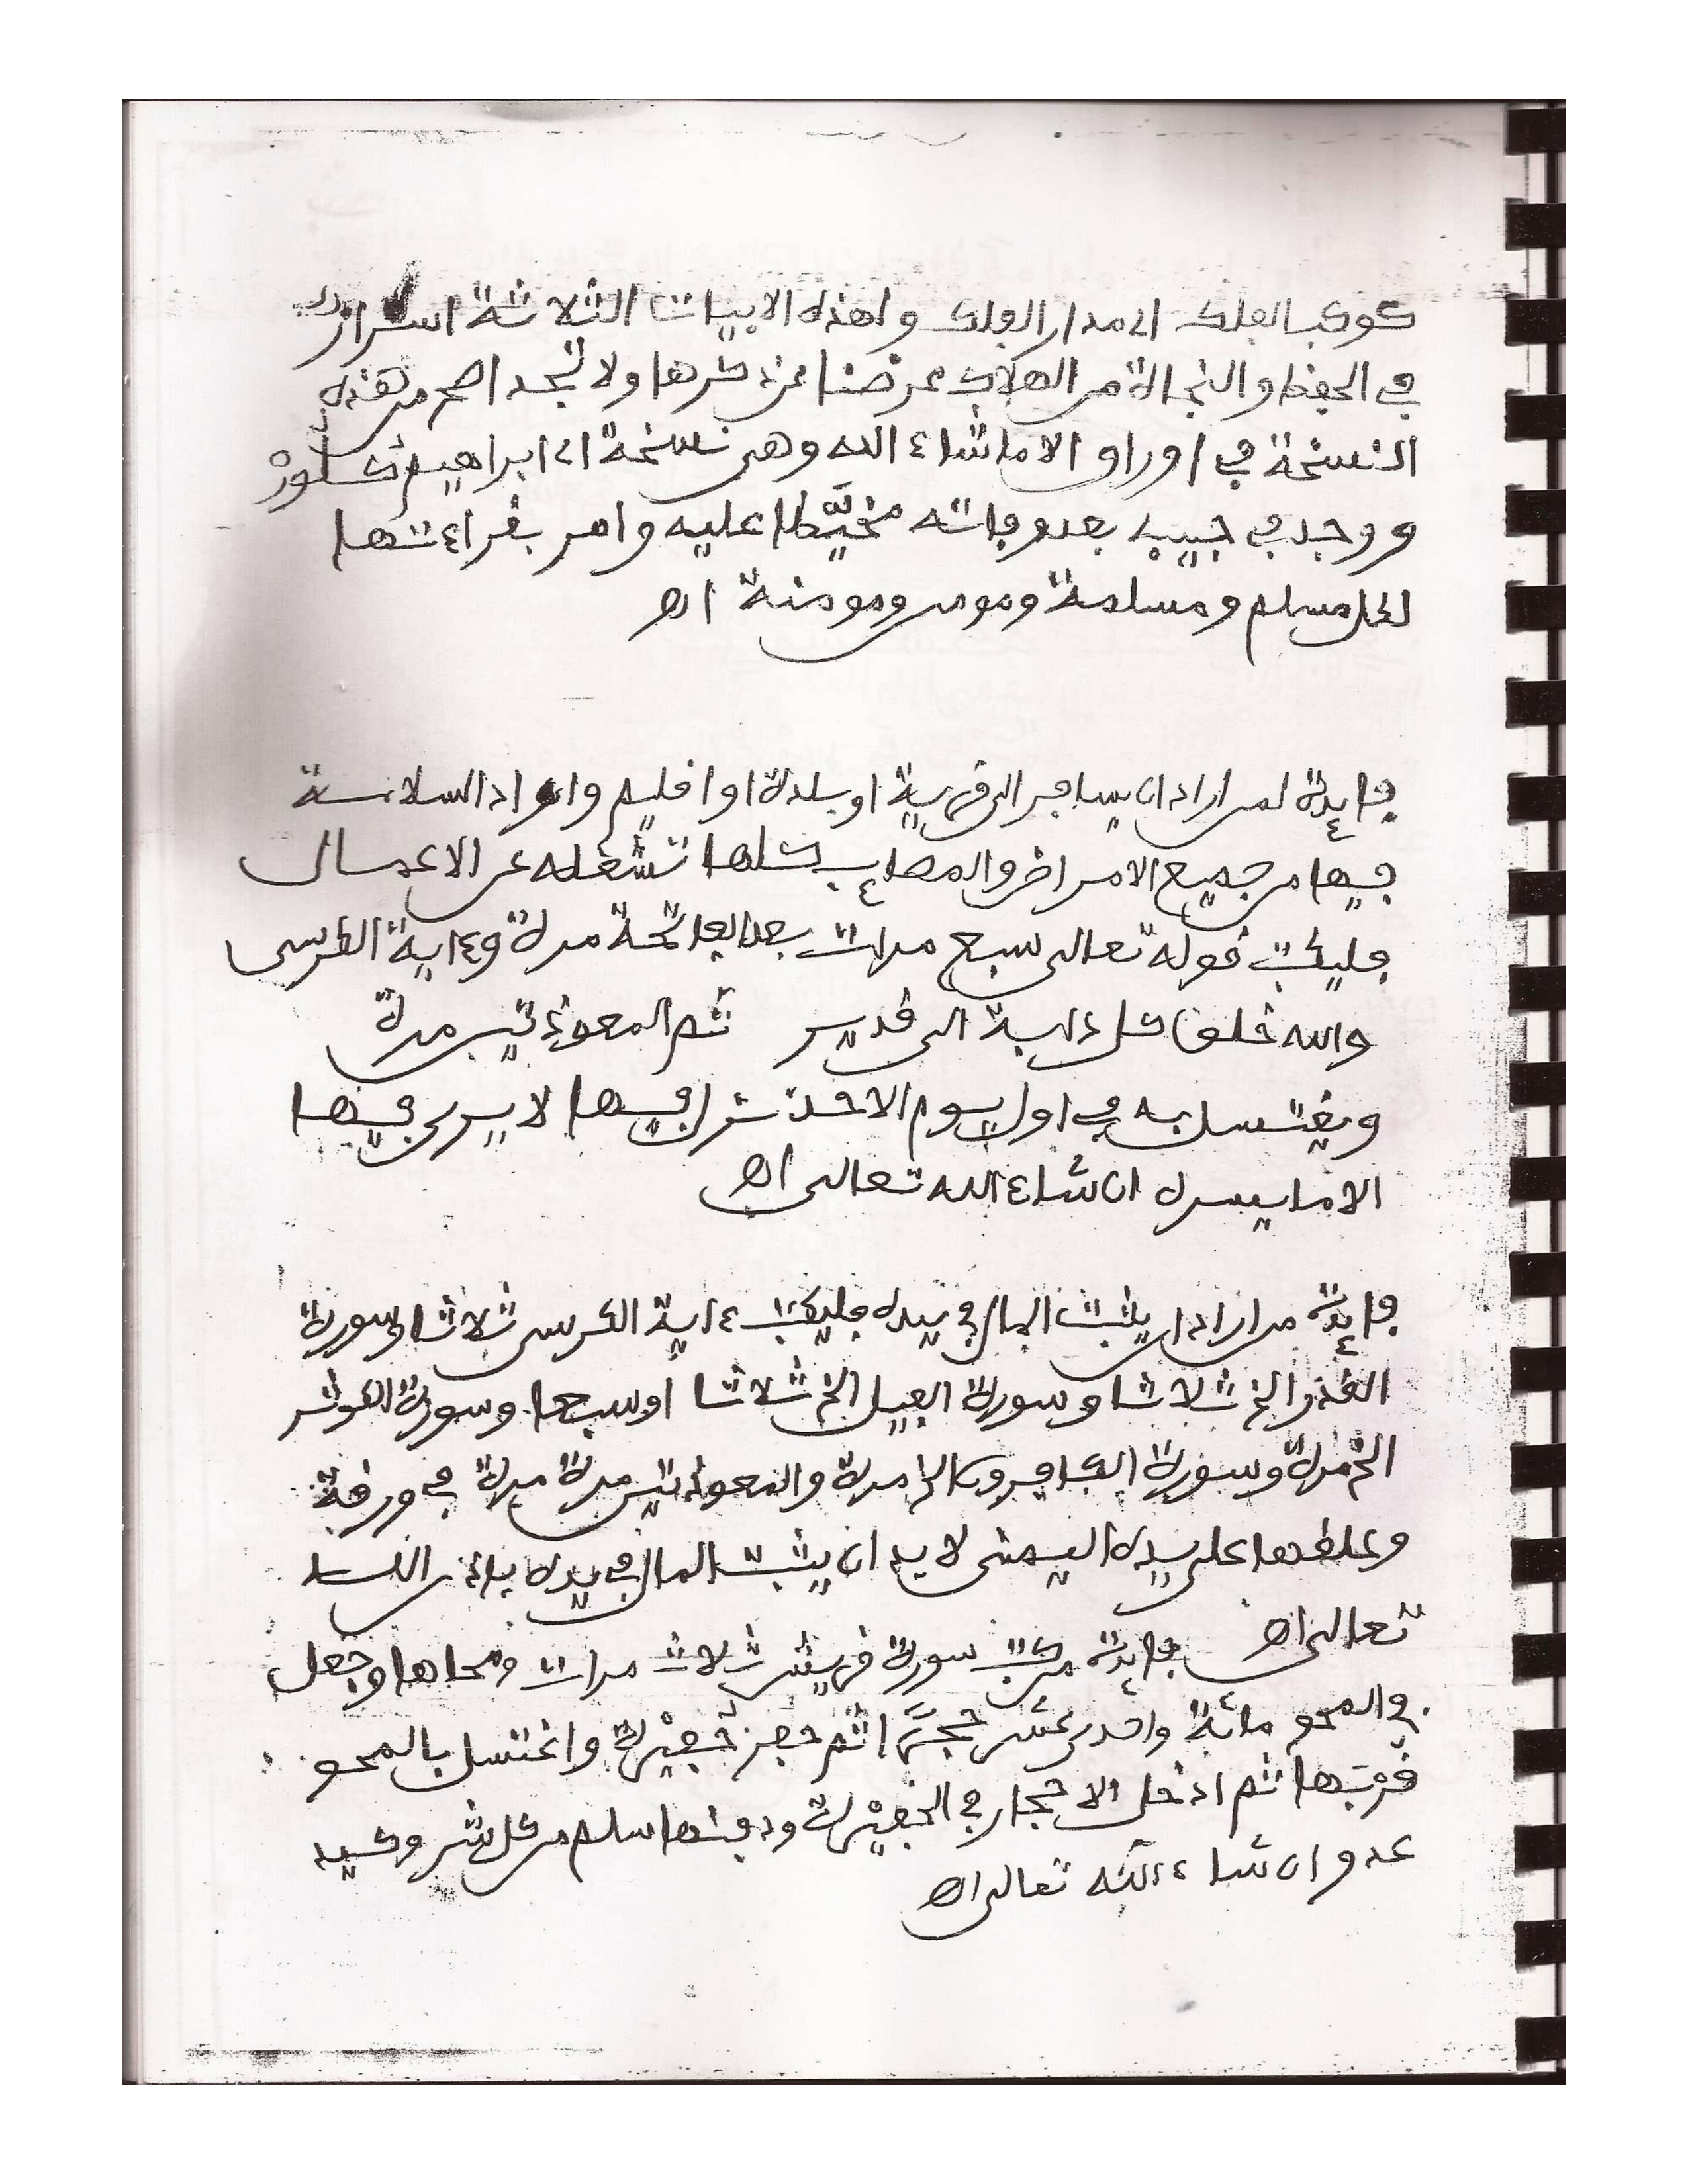 كوكب الفلك الى مدار الفلك ولهذه الابيات الثلاثة اسرار
في الحفظ والنجاة من الهلاك عرضنا عن ذكرها ولا تجد اصح من هذه
النسخة في اوراق الا ما شاء الله وهي نسخة ابراهيم
ووجد في جيبه بعد وفاته مخيَّطا عليه وامر بقراءتها
لكل مسلم ومسلمة ومومن ومومنة اه
فايدة لمن اراد ان يسافر الى قرية او بلدة او اقليم واراد السلامة
فيها من جميع الامراض والمصايب كلها تشغله عن الاعمال
فليكتب قوله تعالى سبع مرات بعد الفاتحة مرة وءاية الكرسي
والله خلق كل دابة الى قدير ثم المعوذتين مرة
ويغتسل به في اول يوم الاحد نزل فيها لا يرى فيها
الا ما يسره ان شاء الله تعالى اه
فايدة من اراد ان يثبت المال في يده فليكتب ءاية الكرسي ثلاثا وسورة
القدر الخ ثلاثا وسورة الفيل الخ ثلاثا او سبعا وسورة الكوثر
الخ مرة وسورة الكافرون الخ مرة والمعوذتين مرة مرة في ورقة
وعلقها على يده اليمنى لا بد ان يثبت المال في يده باذن الله
تعالى اه فايدة من كتب سورة قريش ثلاث مرات ومحاها وجعل
في المحو مائة واحدى عشر حجرًا ثم حفر حفيْرة واغتسل بالمحو
قربها ثم ادخل الاحجار في الحفيْرة ودفنها سلم من كل شر وكيد
عدو ان شاء الله تعالى اه